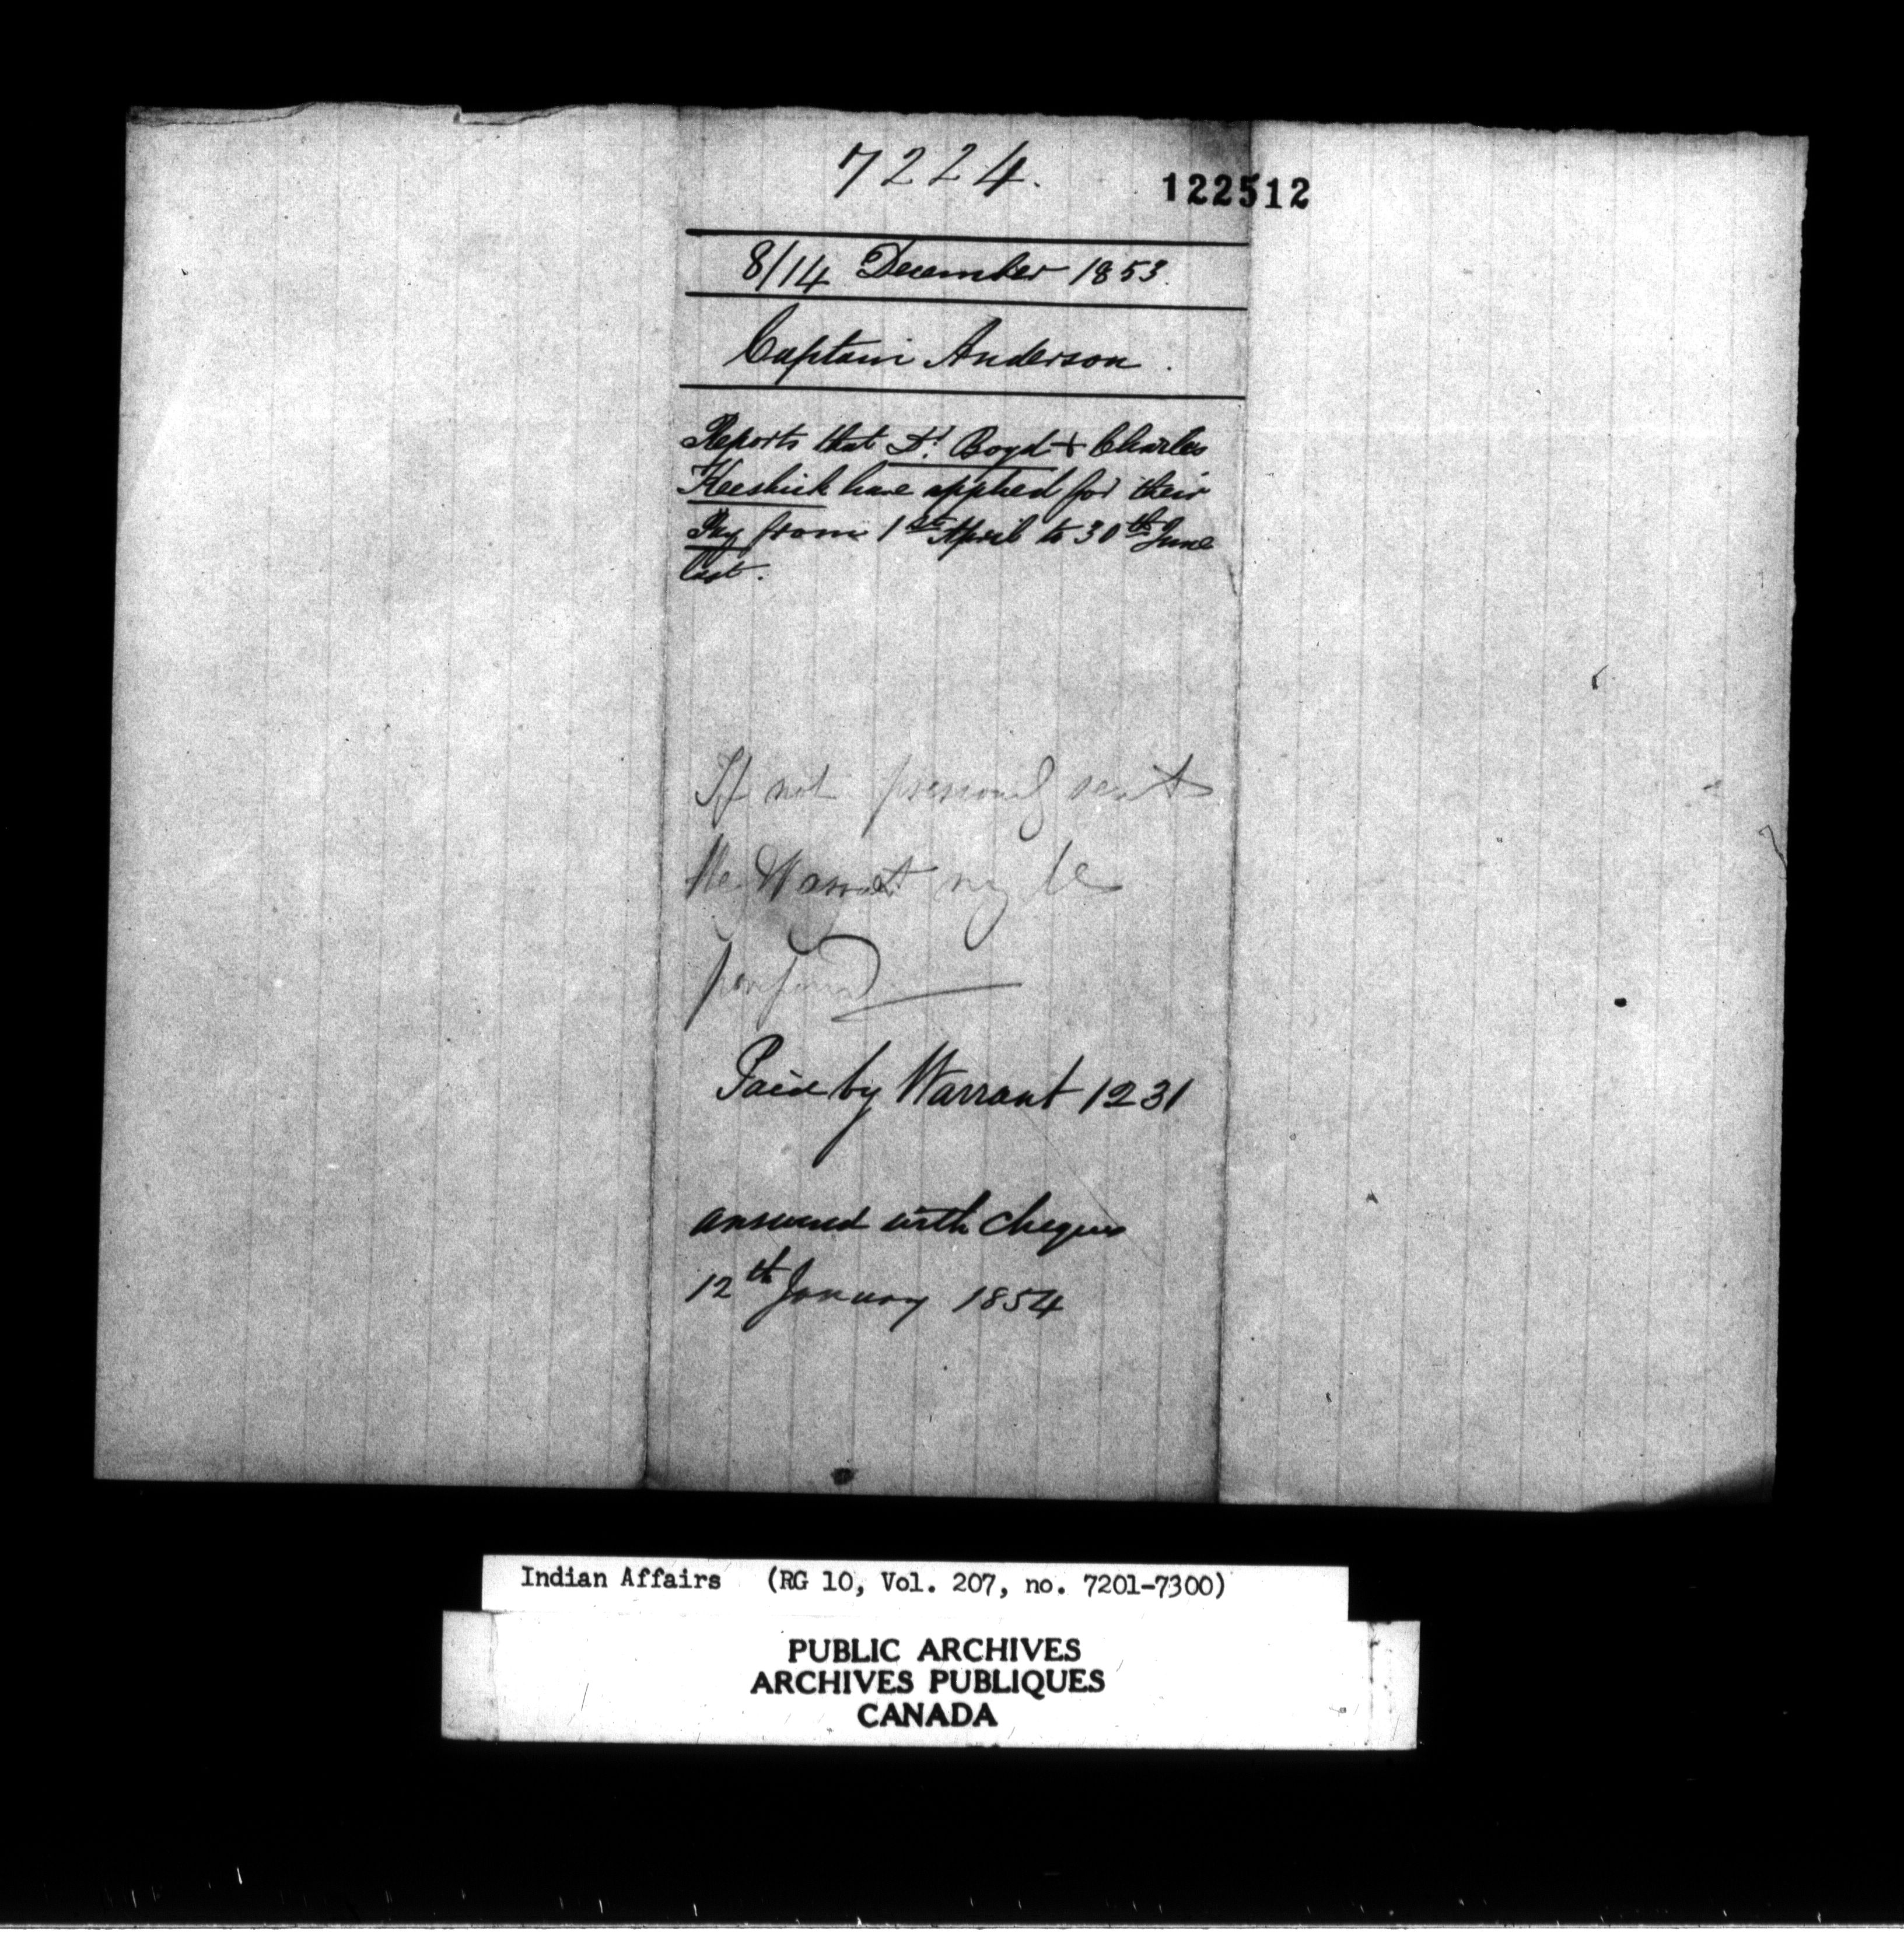 7224.
122512
8/14 December 1853.
Captain Anderson.
Reports that Dr Boyd + Charles
Keeshick have applied for their
Pay from 1st April to 30th June
last.
If not sent
the Warrant may be
prepared
Paid by Warrant 1231
answered with cheques
12th January 1854
Indian Affairs (RG 10, Vol. 207, no. 7201-7300)
PUBLIC ARCHIVES
ARCHIVES PUBLIQUES
CANADA